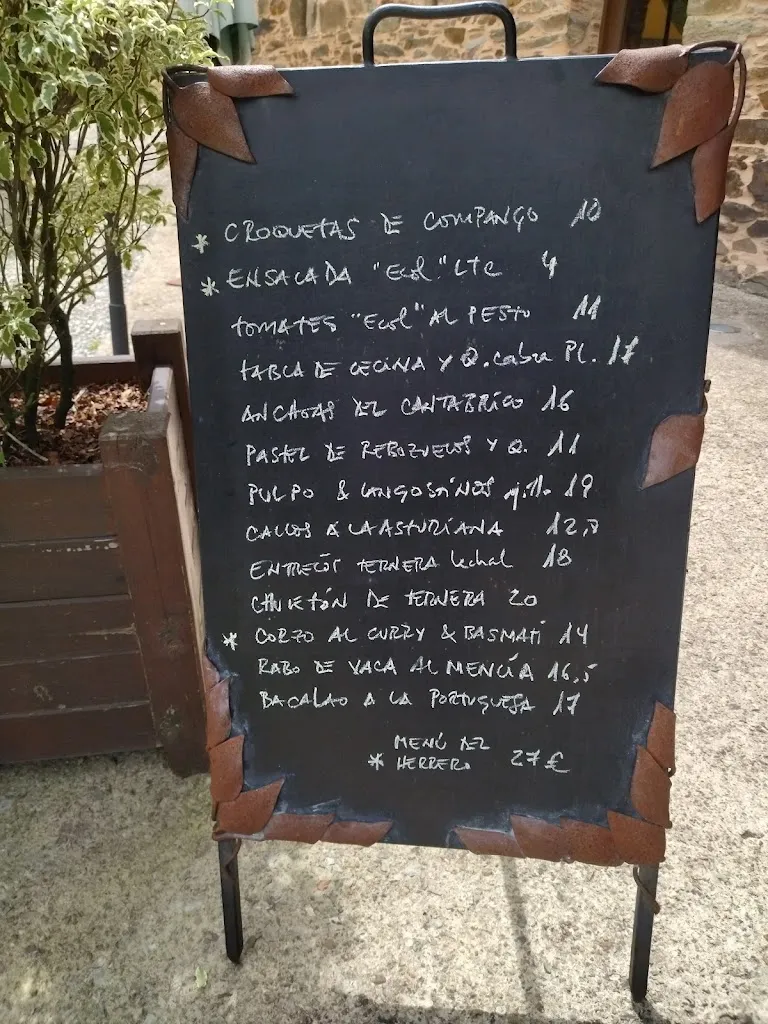 * CROQUETAS DE COMPANGO 10
* ENSALADA "Ecol" LTC 4
TOMATES "Ecol" AL PESTO 11
TABLA DE CECINA Y Q. cabra Pl. 17
ANCHOAS DEL CANTABRICO 16
PASTEL DE REBOZUELOS Y Q. 11
PULPO & LANGOSTINOS 19
CALLOS A LA ASTURIANA 12,
ENTRECOT TERNERA lechal 18
CHULETÓN DE TERNERA 20
* CORZO AL CURRY & BASMATI 14
RABO DE VACA AL MENCÍA 16,5
BACALAO A LA PORTUGUESA 17
MENÚ DEL
* HERRERO 27 €